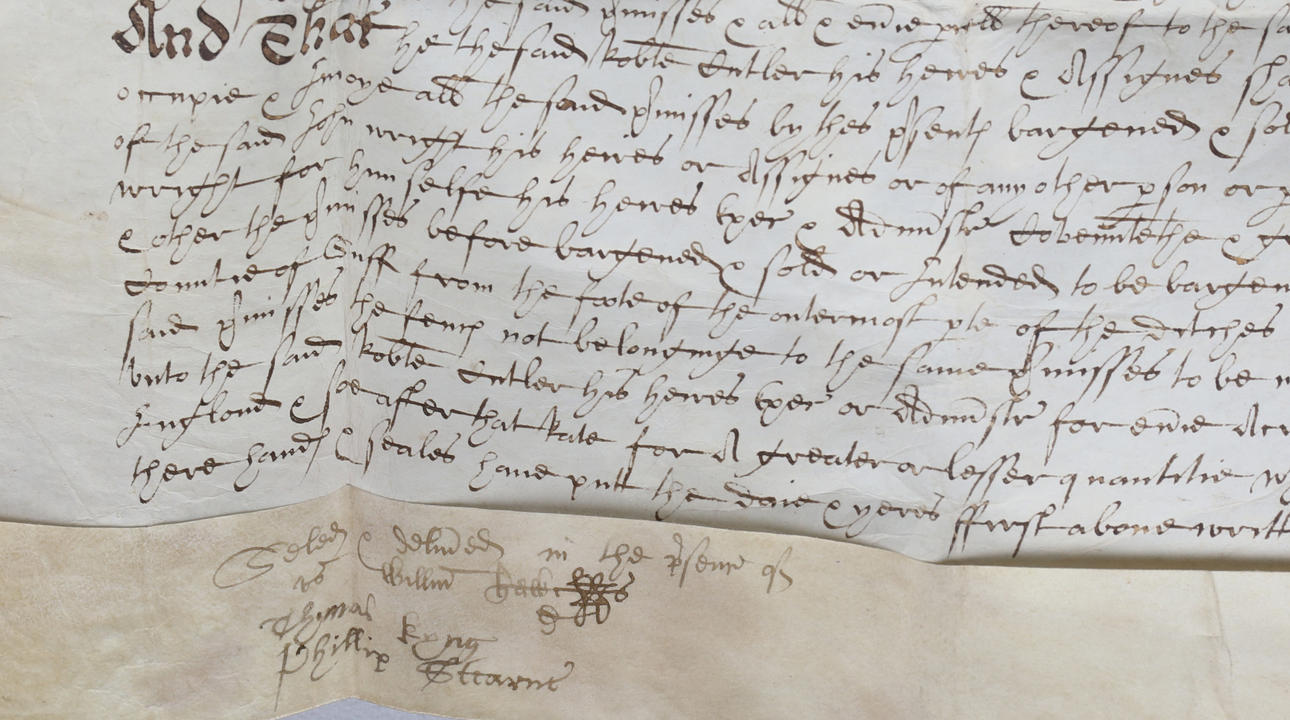 the said p'misses & all & ev'ie p'cell thereof to the sa
And That he the said Rob'te Cutler his heires & Assignes sha
occupie & Injoye all the said p'misses by thes p'sent bargened & sol
of the said John wright his heires or Assignes or of any other p'son or p
wright for him selfe his heires Exec & Adminstr Covennte the & gr
& other the p'misses before bargened & sold or Intended to be bargen
Countie of Suff from the foote of the outermost p'te of the ditches
said p'misses the fenc not belonginge to the same p'misses to be m
vnto the said Rob'te Cutler his heires Exec or Adminstr for ev'ie Acr
England & soe after that Rate for A greater or lesser quantitie w
there hand & seales haue putt the daie & yeres ffirst aboue writt
Seled & deliu'ed in the p'senc of
us Willm
Thomas Kyng
Phillip Stearne